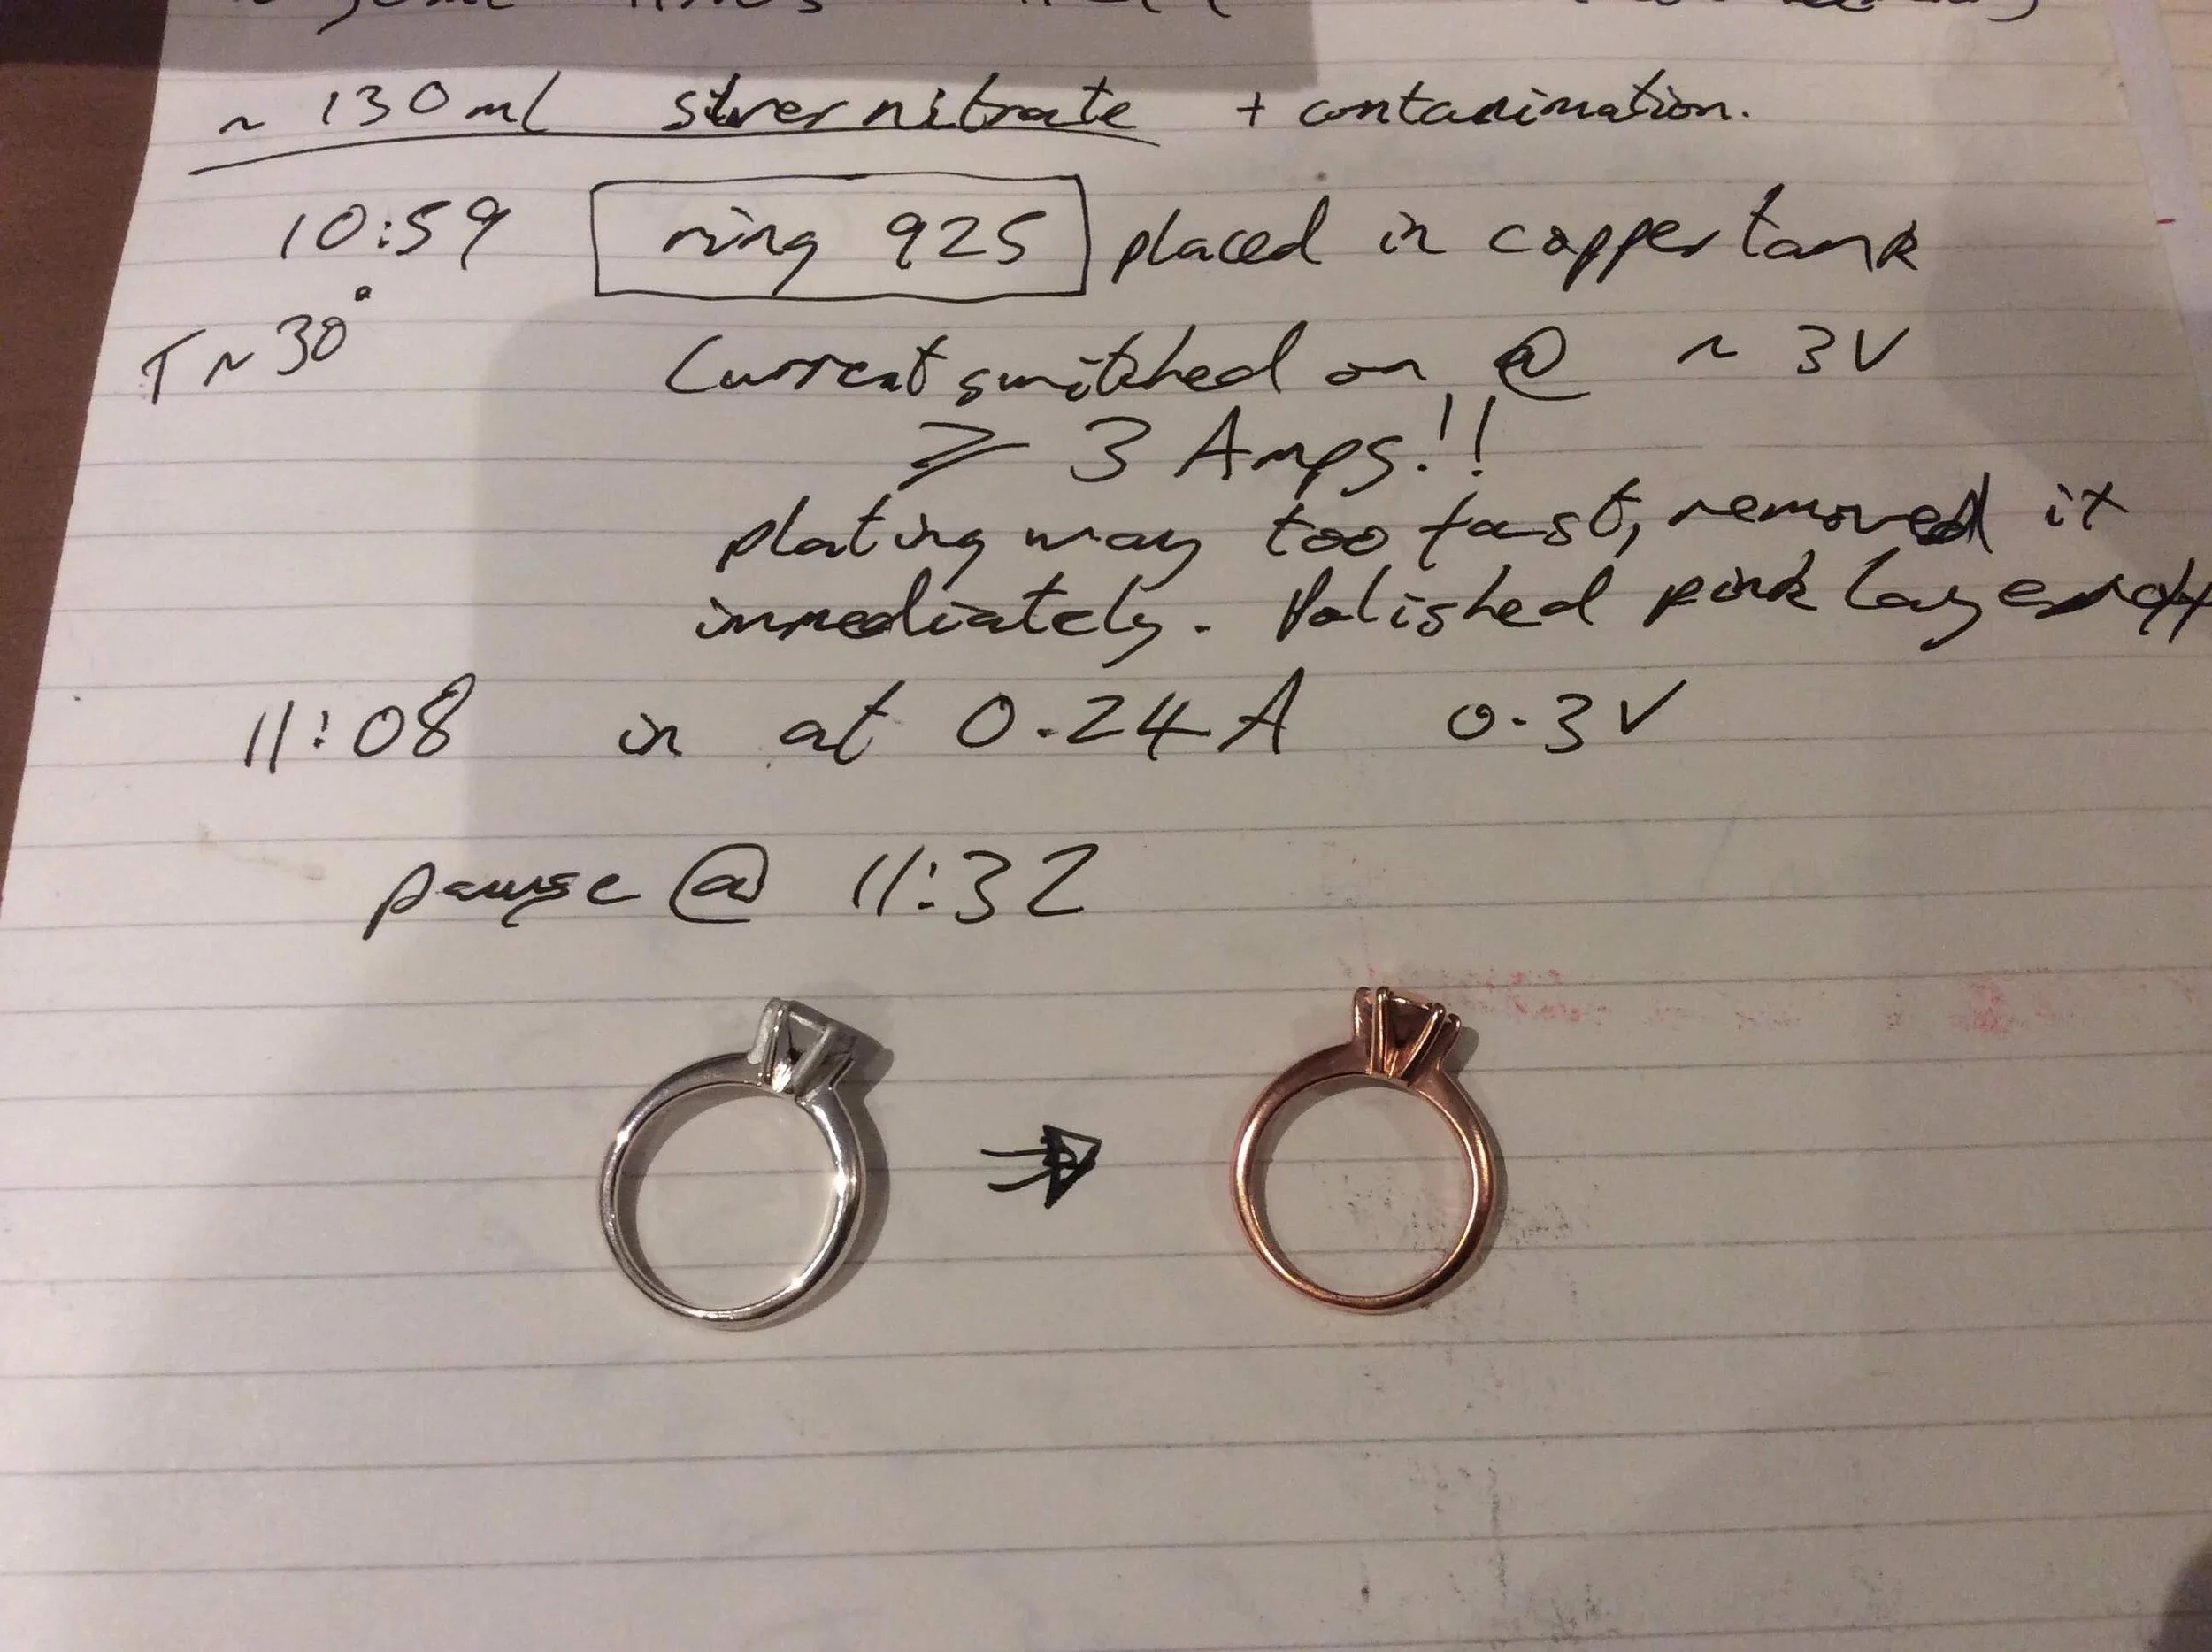 ~ 130ml silver nitrate + contanimation.
10:59 ring 925 placed in copper tank
T ~ 30°
Current switched on @ ~ 3V
≥ 3 Amps!!
plating way too fast, removed it
immediately. Polished pink layer off
11:08 in at 0.24A 0.3V
pause @ 11:32